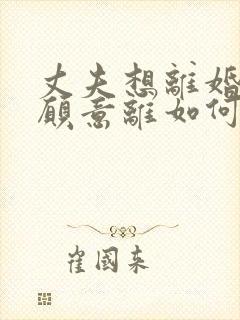 丈夫想離婚
願意離如何
崔國來